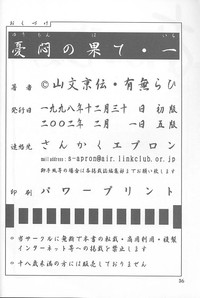 おくづけ
憂悶の果て・一
著者 ©山文京伝・有無らひ
発行日 一九九八年十二月三十日 初版
二〇〇二年二月一日 五版
連絡先 さんかくエプロン
mail address : s-apron@air.linkclub.or.jp
印刷 パワープリント
◇当サークルに無断で本書の転載・商用利用・複製
インターネット等への掲載を禁止します
◇十八歳未満の方には販売しておりません
36